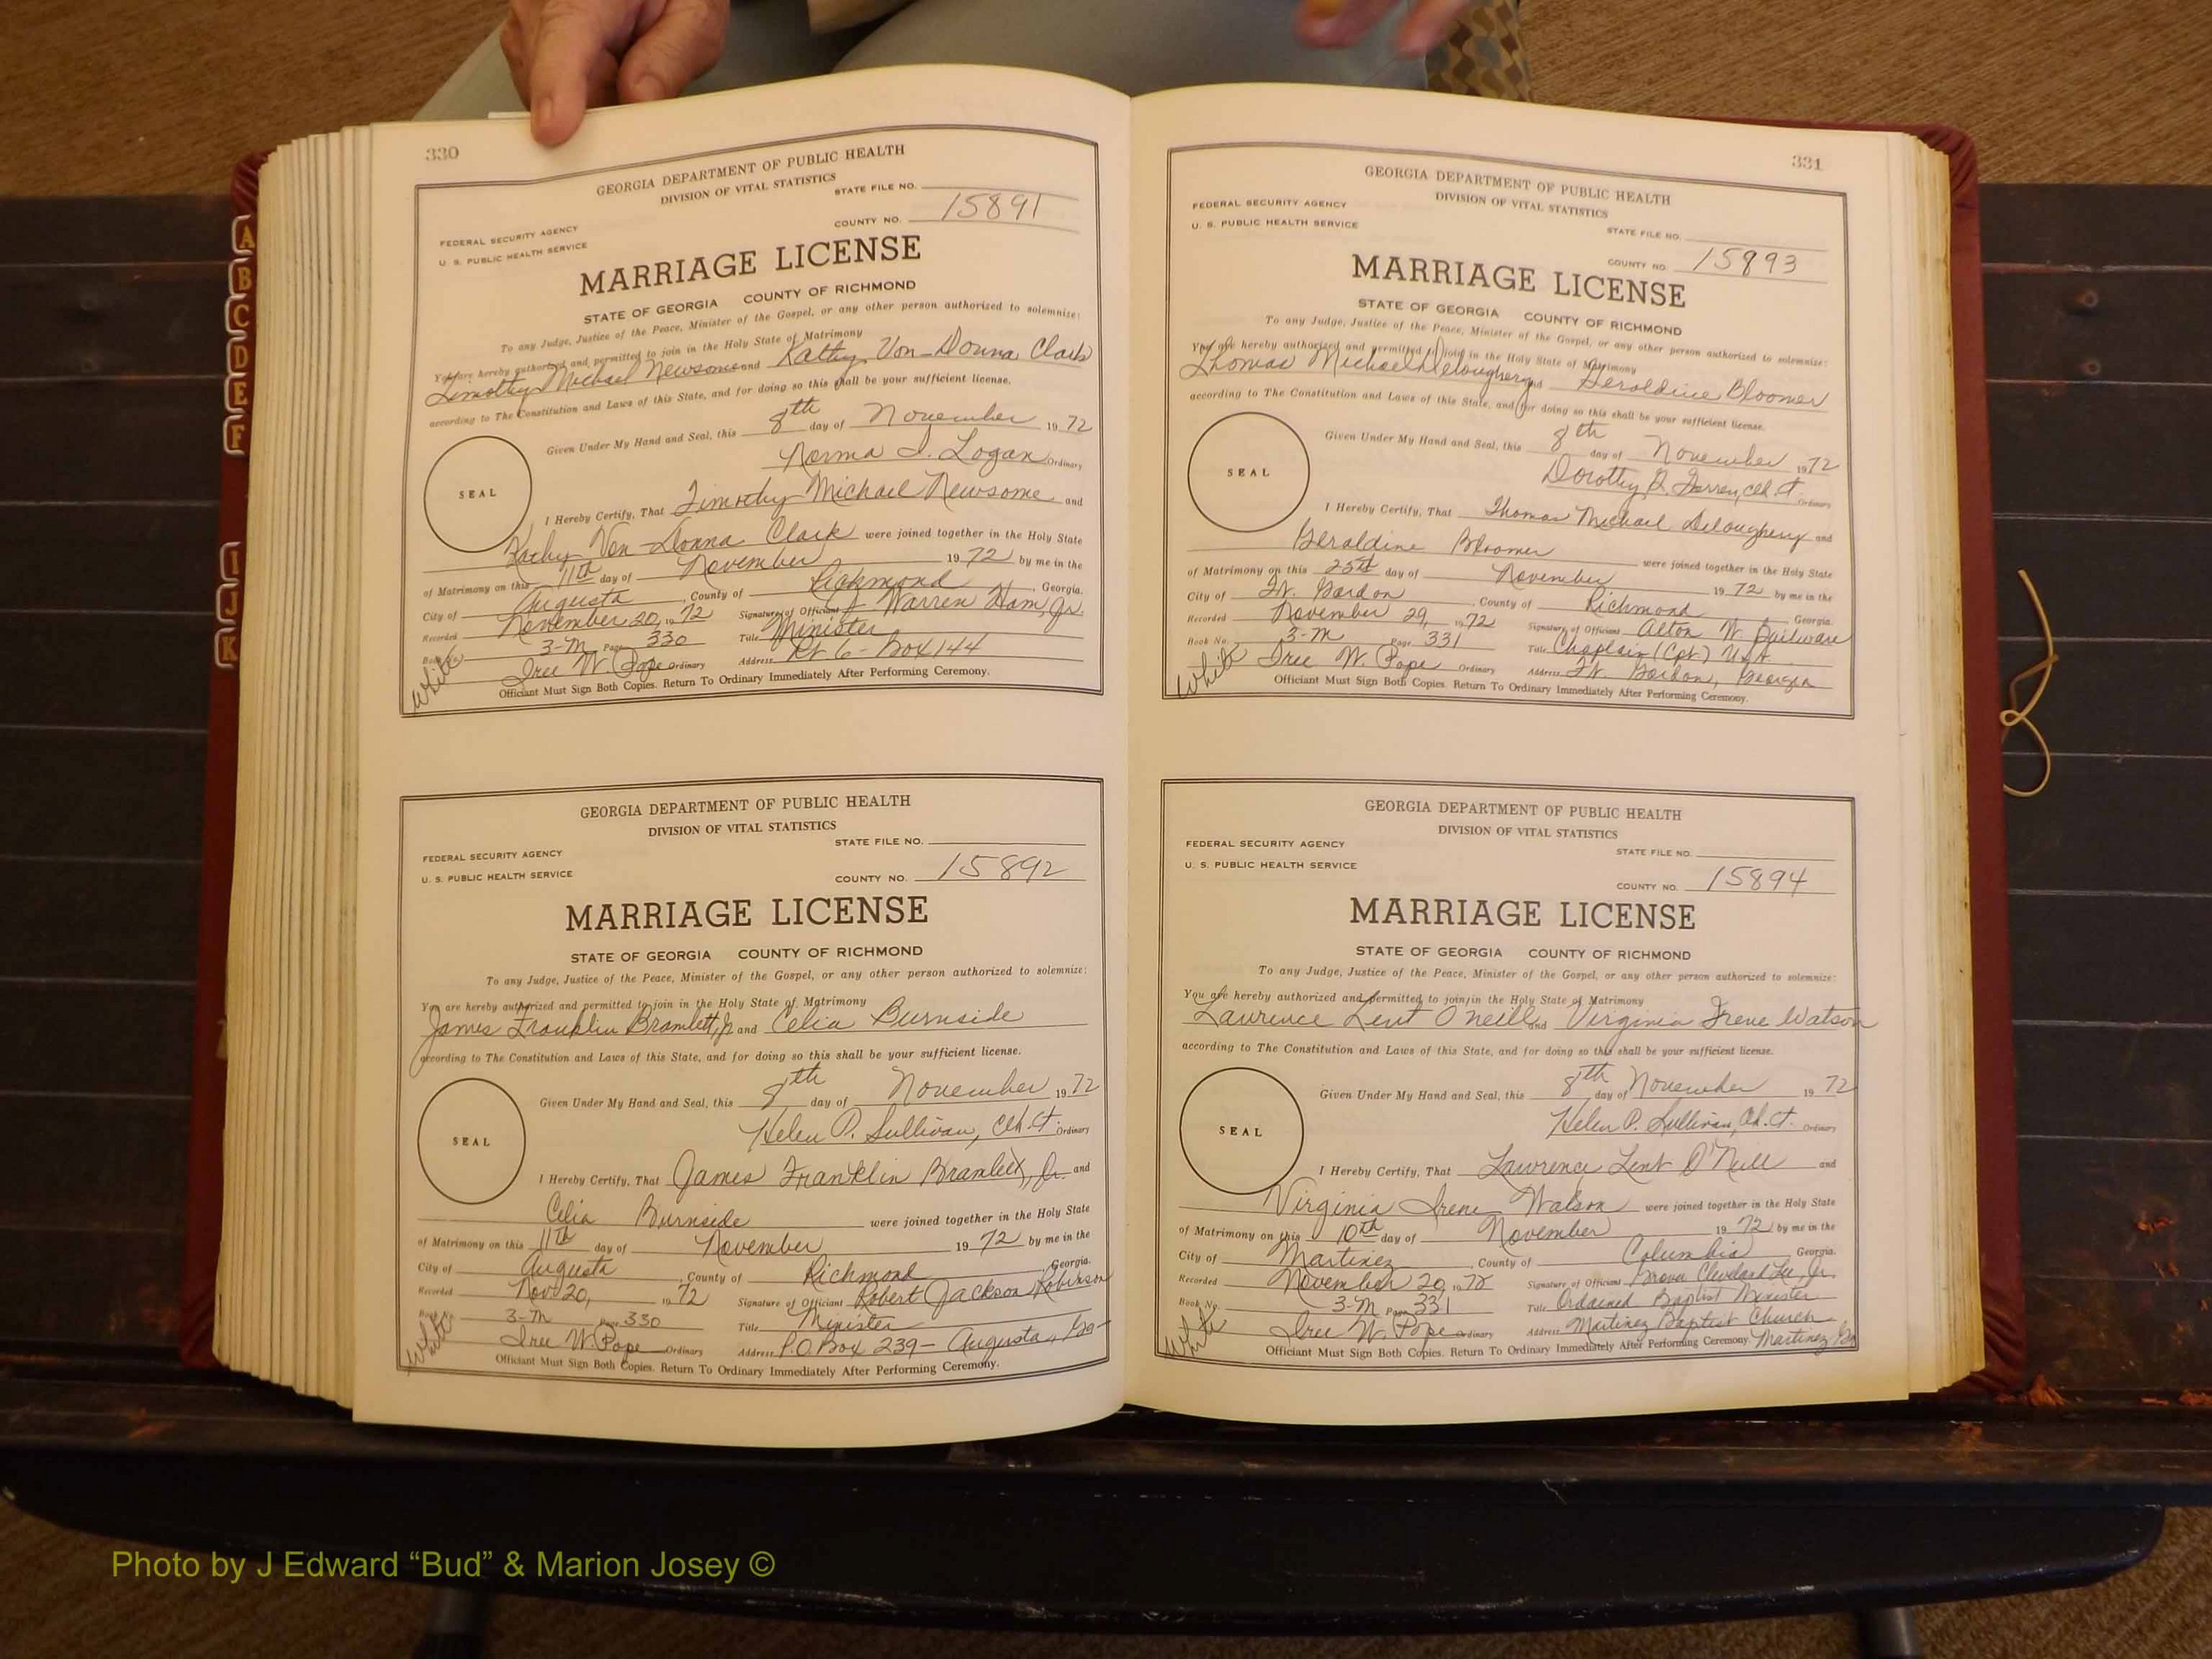 A
B
C
D
E
F
I
J
K
330
GEORGIA DEPARTMENT OF PUBLIC HEALTH
DIVISION OF VITAL STATISTICS
STATE FILE NO.
COUNTY NO. 15891
FEDERAL SECURITY AGENCY
U. S. PUBLIC HEALTH SERVICE
MARRIAGE LICENSE
STATE OF GEORGIA COUNTY OF RICHMOND
To any Judge, Justice of the Peace, Minister of the Gospel, or any other person authorized to solemnize:
You are hereby authorized and permitted to join in the Holy State of Matrimony
Timothy Michael Newsome and Kathy Von-Donna Clark
according to The Constitution and Laws of this State, and for doing so this shall be your sufficient license.
Given Under My Hand and Seal, this 8th day of November 1972
SEAL
Norma I. Logan Ordinary
I Hereby Certify, That Timothy Michael Newsome and
Kathy Von-Donna Clark were joined together in the Holy State
of Matrimony on this 11th day of November 1972 by me in the
City of Augusta, County of Richmond, Georgia.
Recorded November 20, 1972 Signature of Officiant J Warren Ham, Jr.
Book No. 3-M Page 330 Title Minister
White Iree W. Pope Ordinary Address Rt 6 - Box 144
Officiant Must Sign Both Copies. Return To Ordinary Immediately After Performing Ceremony.
GEORGIA DEPARTMENT OF PUBLIC HEALTH
DIVISION OF VITAL STATISTICS
STATE FILE NO.
FEDERAL SECURITY AGENCY
U. S. PUBLIC HEALTH SERVICE
COUNTY NO. 15892
MARRIAGE LICENSE
STATE OF GEORGIA COUNTY OF RICHMOND
To any Judge, Justice of the Peace, Minister of the Gospel, or any other person authorized to solemnize:
You are hereby authorized and permitted to join in the Holy State of Matrimony
James Franklin Bramlett, Jr and Celia Burnside
according to The Constitution and Laws of this State, and for doing so this shall be your sufficient license.
Given Under My Hand and Seal, this 8th day of November 1972
SEAL
Helen P. Sullivan, Clk. Ct. Ordinary
I Hereby Certify, That James Franklin Bramlett, Jr. and
Celia Burnside were joined together in the Holy State
of Matrimony on this 11th day of November 1972 by me in the
City of Augusta, County of Richmond, Georgia.
Recorded Nov 20, 1972 Signature of Officiant Robert Jackson Robinson
Book No. 3-M Page 330 Title Minister
White Iree W. Pope Ordinary Address P.O. Box 239 - Augusta, Ga-
Officiant Must Sign Both Copies. Return To Ordinary Immediately After Performing Ceremony.
331
GEORGIA DEPARTMENT OF PUBLIC HEALTH
DIVISION OF VITAL STATISTICS
FEDERAL SECURITY AGENCY
U. S. PUBLIC HEALTH SERVICE
STATE FILE NO.
COUNTY NO. 15893
MARRIAGE LICENSE
STATE OF GEORGIA COUNTY OF RICHMOND
To any Judge, Justice of the Peace, Minister of the Gospel, or any other person authorized to solemnize:
You are hereby authorized and permitted to join in the Holy State of Matrimony
Thomas Michael Deloughery and Geraldine Bloomer
according to The Constitution and Laws of this State, and for doing so this shall be your sufficient license.
Given Under My Hand and Seal, this 8th day of November 1972
SEAL
Dorothy Clk. Ct. Ordinary
I Hereby Certify, That Thomas Michael Deloughery and
Geraldine Bloomer were joined together in the Holy State
of Matrimony on this 25th day of November 1972 by me in the
City of Ft. Gordon, County of Richmond Georgia.
Recorded November 29, 1972 Signature of Officiant Alton W.
Book No. 3-M Page 331 Title Chaplain (Cpt) USA
White Iree W. Pope Ordinary Address Ft. Gordon, Georgia
Officiant Must Sign Both Copies. Return To Ordinary Immediately After Performing Ceremony.
GEORGIA DEPARTMENT OF PUBLIC HEALTH
DIVISION OF VITAL STATISTICS
FEDERAL SECURITY AGENCY
STATE FILE NO.
U. S. PUBLIC HEALTH SERVICE
COUNTY NO. 15894
MARRIAGE LICENSE
STATE OF GEORGIA COUNTY OF RICHMOND
To any Judge, Justice of the Peace, Minister of the Gospel, or any other person authorized to solemnize:
You are hereby authorized and permitted to join in the Holy State of Matrimony
Laurence Lent O'neill and Virginia Irene Watson
according to The Constitution and Laws of this State, and for doing so this shall be your sufficient license.
Given Under My Hand and Seal, this 8th day of November 1972
SEAL
Helen P. Sullivan, Clk. Ct. Ordinary
I Hereby Certify, That Lawrence Lent O'Neill and
Virginia Irene Watson were joined together in the Holy State
of Matrimony on this 10th day of November 1972 by me in the
City of Martinez, County of Columbia, Georgia.
Recorded November 20, 1972 Signature of Officiant Cleveland Lee, Jr.
Book No. 3-M Page 331 Title Ordained Baptist Minister
White Iree W. Pope Ordinary Address Martinez Baptist Church
Officiant Must Sign Both Copies. Return To Ordinary Immediately After Performing Ceremony. Martinez, Ga
Photo by J Edward “Bud” & Marion Josey ©